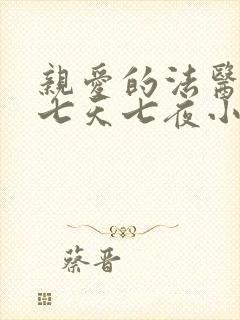 親愛的法醫
七天七夜小
蔡晋